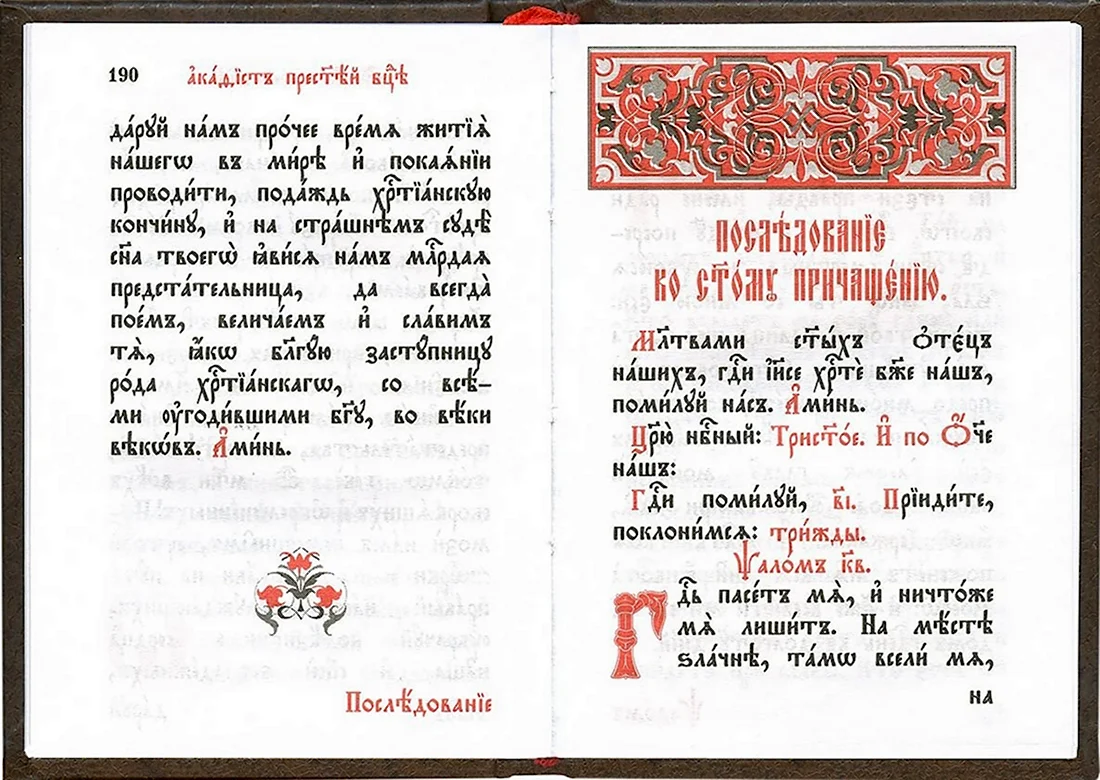 190
а҆ка́ѳїстъ прест҃ѣ́й бц҃ѣ
да́рꙋй на́мъ про́чее вре́мѧ житїѧ̀
на́шегѡ въ ми́рѣ и҆ покаѧ́нїи
проводи́ти, пода́ждь хрⷭ҇тїа́нскꙋю
кончи́нꙋ, и҆ на стра́шнѣмъ сꙋдѣ̀
сн҃а твоегѡ̀ ꙗ҆ви́сѧ на́мъ млⷭ҇рдаѧ
предста́тельница, да всегда̀
пое́мъ, велича́емъ и҆ сла́вимъ
тѧ̀, ꙗ҆́кѡ бл҃гꙋ́ю застꙋ́пницꙋ
ро́да хрⷭ҇тїа́нскагѡ, со всѣ́-
ми ᲂу҆годи́вшими бг҃ꙋ, во вѣ́ки
вѣкѡ́въ. А҆ми́нь.
Послѣ́дованїе
ПОСЛѢ́ДОВАНЇЕ
КО СТ҃О́МꙊ ПРИЧАЩЕ́НЇЮ.
Мл҃твами ст҃ы́хъ Ѻ҆те́цъ
на́шихъ, гдⷭ҇и і҆и҃се хрⷭ҇те́ бж҃е на́шъ,
поми́лꙋй на́съ. А҆ми́нь.
Цр҃ю̀ нбⷭ҇ный: Трист҃о́е. И҆ по Ѻ҆́ч҃е
на́шъ:
Гдⷭ҇и поми́лꙋй, в҃і. Прїиди́те,
поклони́мсѧ: три́жды.
Ѱало́мъ к҃в.
Гдⷭ҇ь пасе́тъ мѧ̀, и҆ ничто́же
мѧ̀ лиши́тъ. На мѣ́стѣ
ѕла́чнѣ, та́мѡ всели́ мѧ,
на